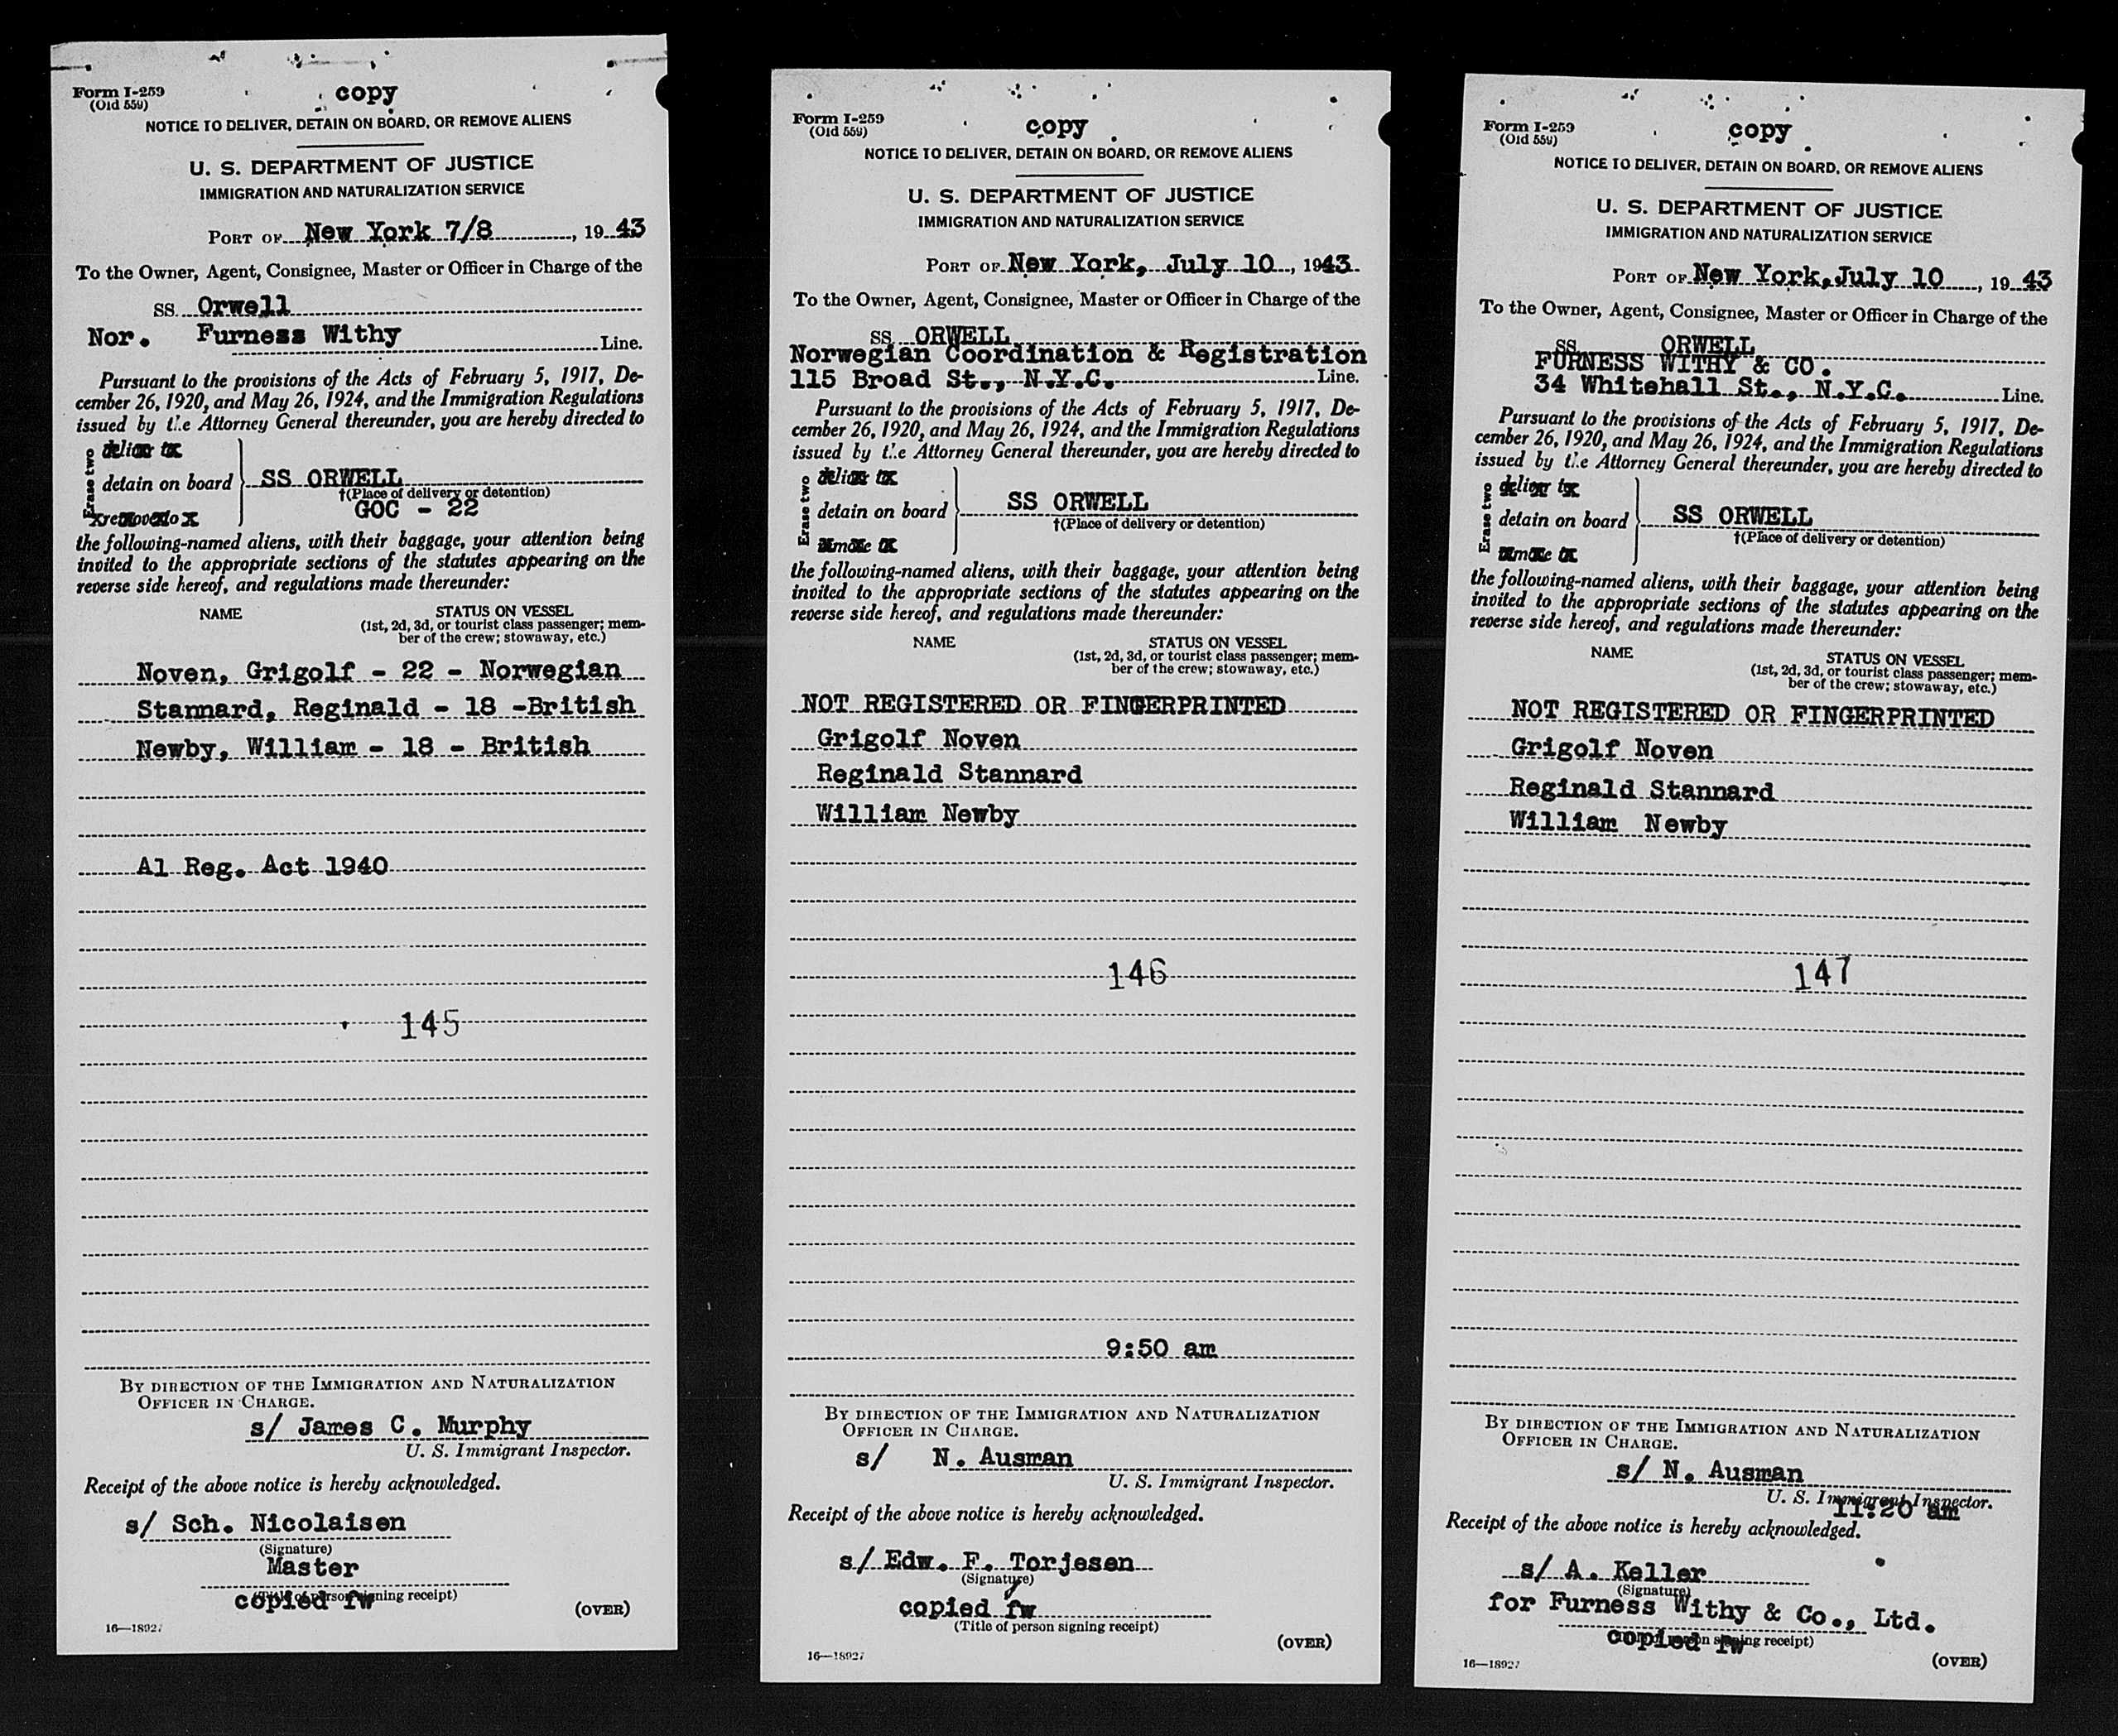 Form I-259
(Old 559)
copy
NOTICE TO DELIVER, DETAIN ON BOARD, OR REMOVE ALIENS
U. S. DEPARTMENT OF JUSTICE
IMMIGRATION AND NATURALIZATION SERVICE
PORT OF New York 7/8, 19 43
To the Owner, Agent, Consignee, Master or Officer in Charge of the
SS. Orwell
Nor. Furness Withy Line.
Pursuant to the provisions of the Acts of February 5, 1917, De-
cember 26, 1920, and May 26, 1924, and the Immigration Regulations
issued by the Attorney General thereunder, you are hereby directed to
Erase two
deliver to
detain on board
remove to
SS ORWELL
†(Place of delivery or detention)
GOC - 22
the following-named aliens, with their baggage, your attention being
invited to the appropriate sections of the statutes appearing on the
reverse side hereof, and regulations made thereunder:
NAME
STATUS ON VESSEL
(1st, 2d, 3d, or tourist class passenger; mem-
ber of the crew; stowaway, etc.)
Noven, Grigolf - 22 - Norwegian
Stannard, Reginald - 18 -British
Newby, William - 18 - British
Al Reg. Act 1940
145
BY DIRECTION OF THE IMMIGRATION AND NATURALIZATION
OFFICER IN CHARGE.
s/ James C. Murphy
U. S. Immigrant Inspector.
Receipt of the above notice is hereby acknowledged.
s/ Sch. Nicolaisen
(Signature)
Master
(Title of person signing receipt)
copied fw
(OVER)
16—18927
Form I-259
(Old 559)
copy
NOTICE TO DELIVER, DETAIN ON BOARD, OR REMOVE ALIENS
U. S. DEPARTMENT OF JUSTICE
IMMIGRATION AND NATURALIZATION SERVICE
PORT OF New York, July 10, 1943.
To the Owner, Agent, Consignee, Master or Officer in Charge of the
SS ORWELL
Norwegian Coordination & Registration
115 Broad St., N.Y.C. Line.
Pursuant to the provisions of the Acts of February 5, 1917, De-
cember 26, 1920, and May 26, 1924, and the Immigration Regulations
issued by the Attorney General thereunder, you are hereby directed to
Erase two
deliver to
detain on board
remove to
SS ORWELL
†(Place of delivery or detention)
the following-named aliens, with their baggage, your attention being
invited to the appropriate sections of the statutes appearing on the
reverse side hereof, and regulations made thereunder:
NAME
STATUS ON VESSEL
(1st, 2d, 3d, or tourist class passenger; mem-
ber of the crew; stowaway, etc.)
NOT REGISTERED OR FINGERPRINTED
Grigolf Noven
Reginald Stannard
William Newby
146
9:50 am
BY DIRECTION OF THE IMMIGRATION AND NATURALIZATION
OFFICER IN CHARGE.
s/ N. Ausman
U. S. Immigrant Inspector.
Receipt of the above notice is hereby acknowledged.
s/ Edw. F. Torjesen
(Signature)
copied fw
(Title of person signing receipt)
(OVER)
16—18927
Form I-259
(Old 559)
copy
NOTICE TO DELIVER, DETAIN ON BOARD, OR REMOVE ALIENS
U. S. DEPARTMENT OF JUSTICE
IMMIGRATION AND NATURALIZATION SERVICE
PORT OF New York, July 10, 19 43
To the Owner, Agent, Consignee, Master or Officer in Charge of the
SS ORWELL
FURNESS WITHY & CO.
34 Whitehall St., N.Y.C. Line.
Pursuant to the provisions of the Acts of February 5, 1917, De-
cember 26, 1920, and May 26, 1924, and the Immigration Regulations
issued by the Attorney General thereunder, you are hereby directed to
Erase two
deliver to
detain on board
remove to
SS ORWELL
†(Place of delivery or detention)
the following-named aliens, with their baggage, your attention being
invited to the appropriate sections of the statutes appearing on the
reverse side hereof, and regulations made thereunder:
NAME
STATUS ON VESSEL
(1st, 2d, 3d, or tourist class passenger; mem-
ber of the crew; stowaway, etc.)
NOT REGISTERED OR FINGERPRINTED
Grigolf Noven
Reginald Stannard
William Newby
147
BY DIRECTION OF THE IMMIGRATION AND NATURALIZATION
OFFICER IN CHARGE.
s/ N. Ausman
U. S. Immigrant Inspector.
11:20 am
Receipt of the above notice is hereby acknowledged.
s/ A. Keller
(Signature)
for Furness Withy & Co., Ltd.
(Title of person signing receipt)
copied fw
(OVER)
16—18927